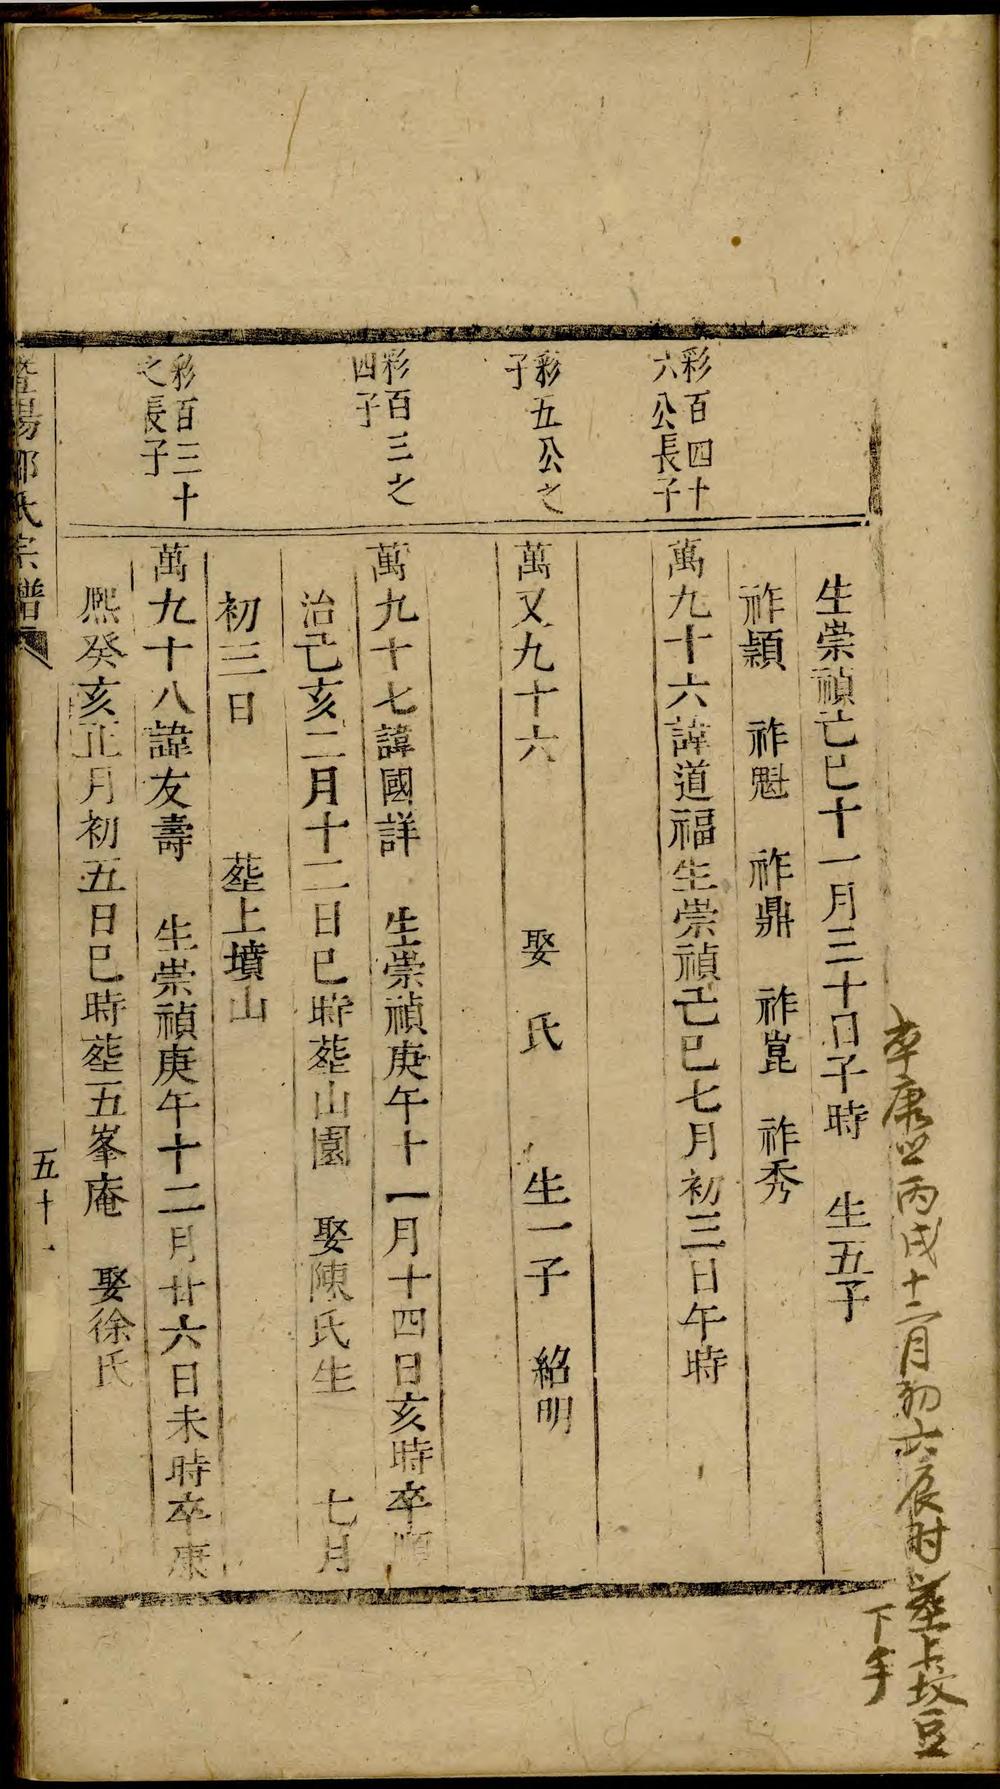 卒康熙丙戌十二月初六辰时葬上坟
下手
生崇禎己巳十一月三十日子時 生五子
祚穎 祚魁 祚鼎 祚崑 祚秀
彩百四十
六公長子
萬九十六諱道福生崇禎己巳七月初三日午時
彩五公之
子
萬又九十六 娶 氏 生一子 紹明
彩百三之
四子
萬九十七諱國詳 生崇禎庚午十一月十四日亥時卒順
治己亥二月十二日巳時葬山園 娶陳氏生 七月
初三日 葬上墳山
彩百三十
之長子
萬九十八諱友壽 生崇禎庚午十二月廿六日未時卒康
熙癸亥正月初五日巳時葬五峯庵 娶徐氏
暨陽 氏宗譜
五十